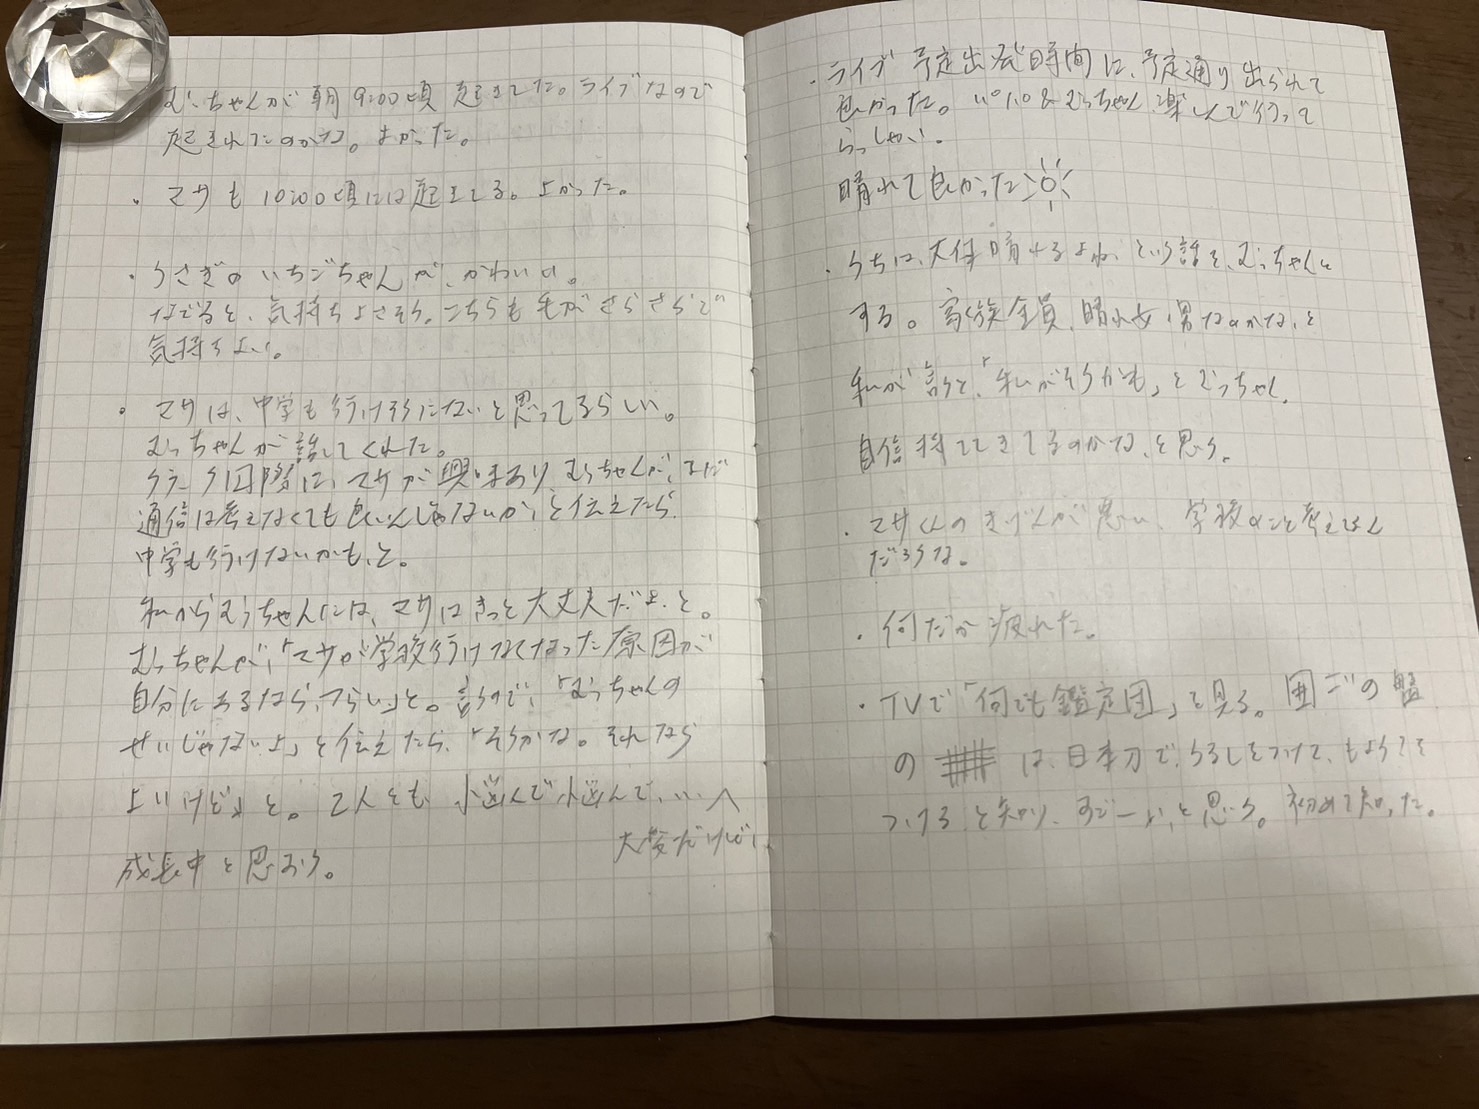 むっちゃんが朝9:00頃起きてた。ライブなので
起きれたのかな。よかった。
・マサも10:00頃には起きてる。よかった。
・うさぎのいちごちゃんが、かわいい。
なでると、気持ちよさそう。こちらも毛がさらさらで
気持ちよい。
・マサは、中学も行けそうにないと思ってるらしい。
むっちゃんが話してくれた。
に、マサが興味あり、むっちゃんが、まだ
通信は考えなくても良いんじゃないか、と伝えたら、
中学も行けないかも、と。
私からむっちゃんには、マサはきっと大丈夫だよ、と。
むっちゃんが、「マサが学校行けなくなった原因が
自分にあるなら、つらい」と。言うので、「むっちゃんの
せいじゃないよ」と伝えたら、「そうかな。それなら
よいけど」と。2人とも、小悩んで小悩んで、…へ
大変だけど、
成長中と思おう。
・ライブ 予定出発時間に、予定通り出られて
良かった。パパ&むっちゃん楽しんで行って
らっしゃい。
晴れて良かった
・うちは、大体晴れるよね、という話を、むっちゃんと
する。家族全員、晴れ女・男なのかな、と
私が言うと、「私がそうかも」とむっちゃん。
自信持ててきてるのかな、と思う。
・マサくんのきげんが悪い、学校のこと考えてん
だろうな。
・何だか疲れた。
・TVで「何でも鑑定団」を見る。囲ごの盤
の は、日本刀で、うるしをつけて、もようを
つけると知り、すごーい、と思う。初めて知った。